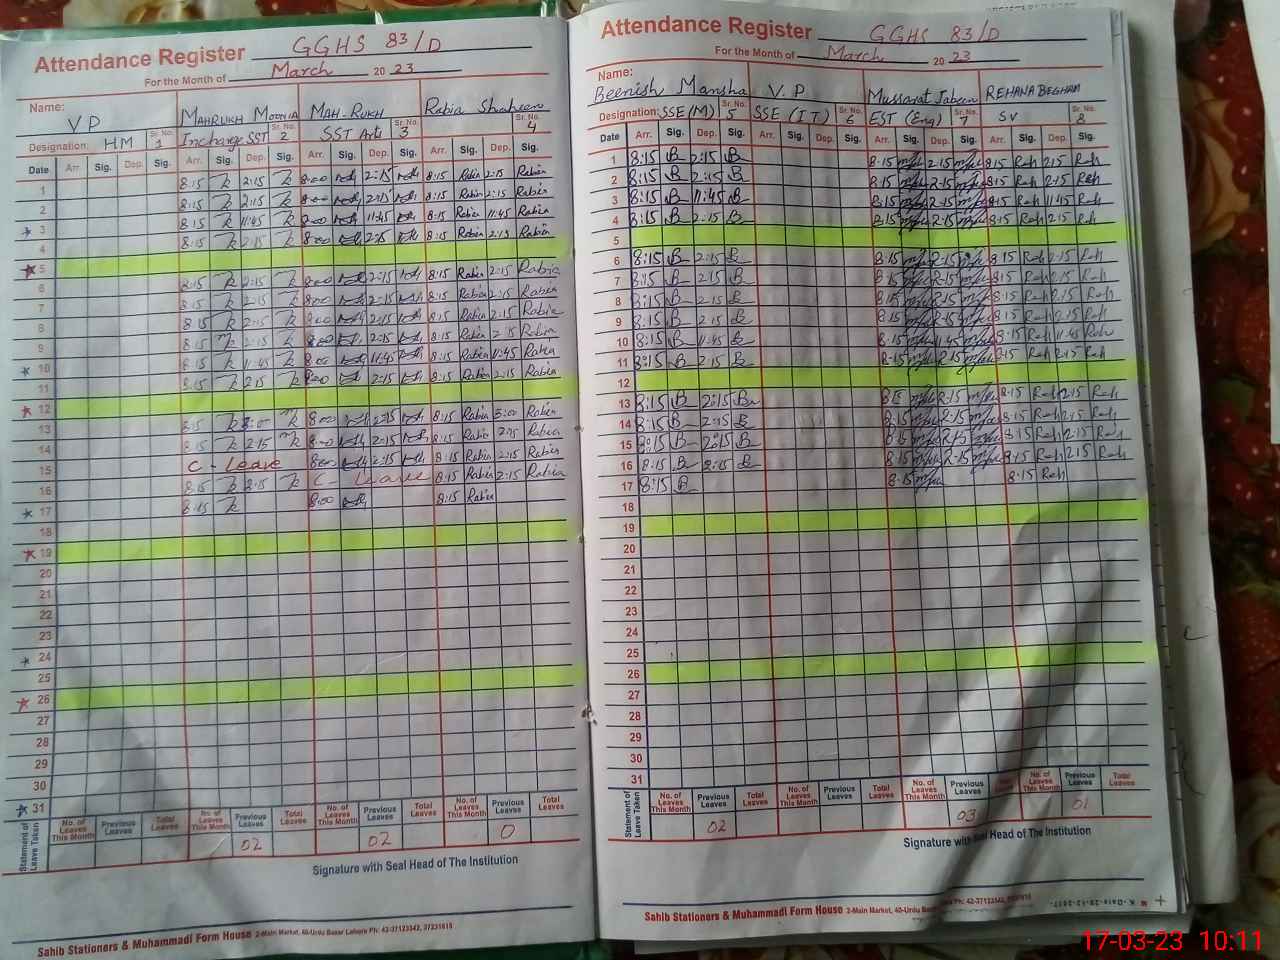 Attendance Register GGHS 83/D
For the Month of March 20 23
Name: VP MAHRUKH MAH-RUKH Rabia Shaheen
Designation: HM Sr. No. 1 Incharge SST Sr. No. 2 SST Arts Sr. No. 3 Sr. No. 4
Date Arr. Sig. Dep. Sig. Arr. Sig. Dep. Sig. Arr. Sig. Dep. Sig. Arr. Sig. Dep. Sig.
1 8:15 2:15 8:00 2:15 8:15 Rabia 2:15 Rabia
2 8:15 2:15 8:00 2:15 8:15 Rabia 2:15 Rabia
3 8:15 11:45 8:00 11:45 8:15 Rabia 11:45 Rabia
4 8:15 2:15 8:00 2:15 8:15 Rabia 2:15 Rabia
5
6 8:15 2:15 8:00 2:15 8:15 Rabia 2:15 Rabia
7 8:15 2:15 8:00 2:15 8:15 Rabia 2:15 Rabia
8 8:15 2:15 8:00 2:15 8:15 Rabia 2:15 Rabia
9 8:15 2:15 8:00 2:15 8:15 Rabia 2:15 Rabia
10 8:15 11:45 8:00 11:45 8:15 Rabia 11:45 Rabia
11 8:15 2:15 8:00 2:15 8:15 Rabia 2:15 Rabia
12
13 8:15 8:00 2:15 8:15 Rabia Rabia
14 8:15 2:15 8:00 2:15 8:15 Rabia 2:15 Rabia
15 C - Leave 8:00 2:15 8:15 Rabia 2:15 Rabia
16 8:15 2:15 C - Leave 8:15 Rabia 2:15 Rabia
17 8:15 8:00 8:15 Rabia
18
19
20
21
22
23
24
25
26
27
28
29
30
31
Statement of Leave Taken No. of Leaves This Month Previous Leaves Total Leaves No. of Leaves This Month Previous Leaves Total Leaves No. of Leaves This Month Previous Leaves Total Leaves No. of Leaves This Month Previous Leaves Total Leaves
02 02 0
Signature with Seal Head of The Institution
Sahib Stationers & Muhammadi Form House 2-Main Market, 40-Urdu Bazar Lahore Ph: 42-37123342, 37231615
Attendance Register GGHS 83/D
For the Month of March 20 23
Name: Beenish Mansha V.P Mussarat Jabeen REHANA BEGHAM
Designation: SSE (M) Sr. No. 5 SSE (IT) Sr. No. 6 EST (Eng) Sr. No. 7 SV Sr. No. 8
Date Arr. Sig. Dep. Sig. Arr. Sig. Dep. Sig. Arr. Sig. Dep. Sig. Arr. Sig. Dep. Sig.
1 8:15 B 2:15 B 8:15 2:15 8:15 Reh 2:15 Reh
2 8:15 B 2:15 B 8:15 2:15 8:15 Reh 2:15 Reh
3 8:15 B 11:45 B 8:15 2:15 8:15 Reh 11:45 Reh
4 8:15 B 2:15 B 8:15 2:15 8:15 Reh 2:15 Reh
5
6 8:15 B 2:15 B 8:15 2:15 8:15 Reh 2:15 Reh
7 8:15 B 2:15 B 8:15 2:15 8:15 Reh 2:15 Reh
8 8:15 B 2:15 B 8:15 2:15 8:15 Reh 2:15 Reh
9 8:15 B 2:15 B 8:15 2:15 8:15 Reh 2:15 Reh
10 8:15 B 11:45 B 8:15 11:45 8:15 Reh 11:45 Reh
11 8:15 B 2:15 B 8:15 2:15 8:15 Reh 2:15 Reh
12
13 8:15 B 2:15 B 2:15 8:15 Reh 2:15 Reh
14 8:15 B 2:15 B 8:15 2:15 8:15 Reh 2:15 Reh
15 8:15 B 2:15 B 8:15 2:15 8:15 Reh 2:15 Reh
16 8:15 B 2:15 B 8:15 2:15 8:15 Reh 2:15 Reh
17 8:15 B 8:15 8:15 Reh
18
19
20
21
22
23
24
25
26
27
28
29
30
31
Statement of Leave Taken No. of Leaves This Month Previous Leaves Total Leaves No. of Leaves This Month Previous Leaves Total Leaves No. of Leaves This Month Previous Leaves No. of Leaves This Month Previous Leaves Total Leaves
02 03 01
Signature with Seal Head of The Institution
Sahib Stationers & Muhammadi Form House 2-Main Market, 40-Urdu Bazar Ph: 42-37123342,
17-03-23 10:11